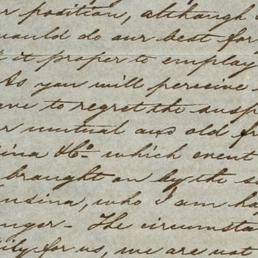 position, although
would do our best for
it proper to employ
As you will perceive
to regret the susp
mutual and old fr
&c. which event
brought on by the s
who I am ha
The circumsta
for us, we are not